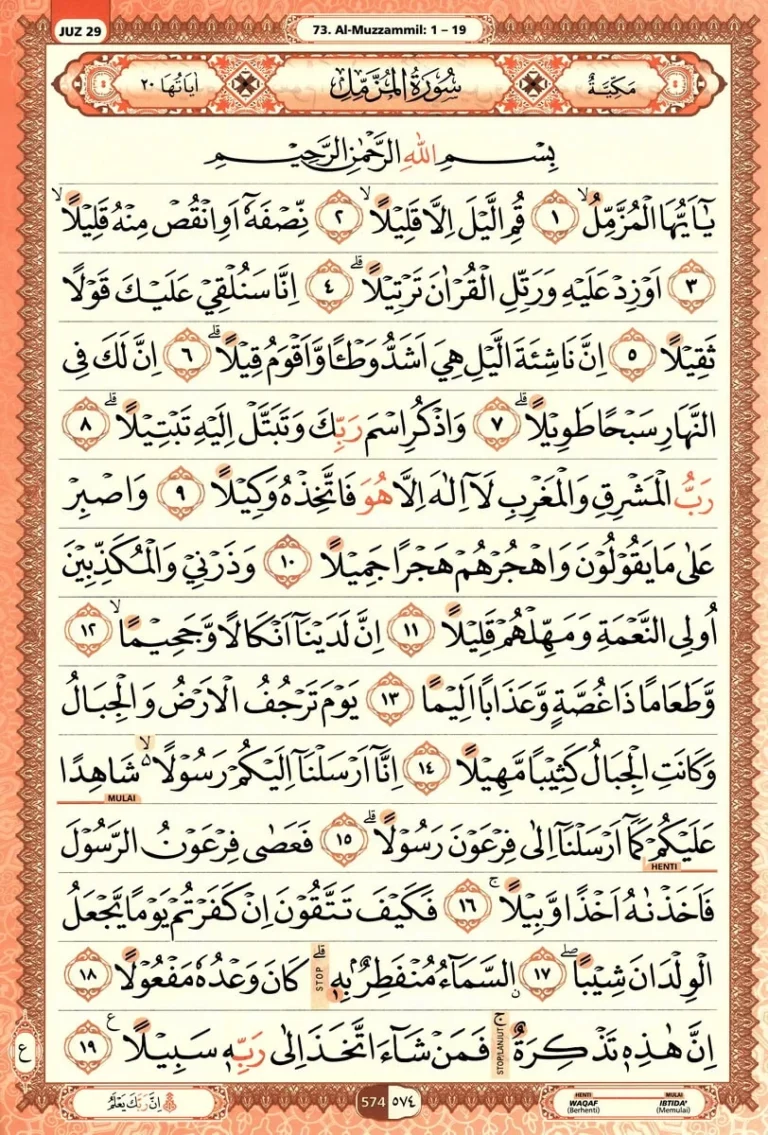 JUZ 29
73. Al-Muzzammil: 1 – 19
مَكِّيَّةٌ سُوْرَةُ الْمُزَّمِّلِ اٰيَاتُهَا ٢٠
بِسْمِ اللّٰهِ الرَّحْمٰنِ الرَّحِيْمِ
يٰٓاَيُّهَا الْمُزَّمِّلُۙ ١ قُمِ الَّيْلَ اِلَّا قَلِيْلًاۙ ٢ نِّصْفَهٗٓ اَوِ انْقُصْ مِنْهُ قَلِيْلًاۙ
٣ اَوْ زِدْ عَلَيْهِ وَرَتِّلِ الْقُرْاٰنَ تَرْتِيْلًاۗ ٤ اِنَّا سَنُلْقِيْ عَلَيْكَ قَوْلًا
ثَقِيْلًا ٥ اِنَّ نَاشِئَةَ الَّيْلِ هِيَ اَشَدُّ وَطْـًٔا وَّاَقْوَمُ قِيْلًاۗ ٦ اِنَّ لَكَ فِى
النَّهَارِ سَبْحًا طَوِيْلًاۗ ٧ وَاذْكُرِ اسْمَ رَبِّكَ وَتَبَتَّلْ اِلَيْهِ تَبْتِيْلًاۗ ٨
رَبُّ الْمَشْرِقِ وَالْمَغْرِبِ لَآ اِلٰهَ اِلَّا هُوَ فَاتَّخِذْهُ وَكِيْلًا ٩ وَاصْبِرْ
عَلٰى مَا يَقُوْلُوْنَ وَاهْجُرْهُمْ هَجْرًا جَمِيْلًا ١٠ وَذَرْنِيْ وَالْمُكَذِّبِيْنَ
اُولِى النَّعْمَةِ وَمَهِّلْهُمْ قَلِيْلًا ١١ اِنَّ لَدَيْنَآ اَنْكَالًا وَّجَحِيْمًاۙ ١٢
وَّطَعَامًا ذَا غُصَّةٍ وَّعَذَابًا اَلِيْمًا ١٣ يَوْمَ تَرْجُفُ الْاَرْضُ وَالْجِبَالُ
وَكَانَتِ الْجِبَالُ كَثِيْبًا مَّهِيْلًا ١٤ اِنَّآ اَرْسَلْنَآ اِلَيْكُمْ رَسُوْلًا ەۙ شَاهِدًا
MULAI
عَلَيْكُمْ كَمَآ اَرْسَلْنَآ اِلٰى فِرْعَوْنَ رَسُوْلًاۗ ١٥ فَعَصٰى فِرْعَوْنُ الرَّسُوْلَ
HENTI
فَاَخَذْنٰهُ اَخْذًا وَّبِيْلًاۚ ١٦ فَكَيْفَ تَتَّقُوْنَ اِنْ كَفَرْتُمْ يَوْمًا يَّجْعَلُ
الْوِلْدَانَ شِيْبًاۖ ١٧ ۨالسَّمَاۤءُ مُنْفَطِرٌۢ بِهٖۗ STOP كَانَ وَعْدُهٗ مَفْعُوْلًا ١٨
اِنَّ هٰذِهٖ تَذْكِرَةٌۚ STOP/LANJUT فَمَنْ شَاۤءَ اتَّخَذَ اِلٰى رَبِّهٖ سَبِيْلًا ࣖ ١٩
ع
اِنَّ رَبَّكَ يَعْلَمُ
574 ٥٧٤
HENTI MULAI
WAQAF IBTIDA'
(Berhenti) (Memulai)